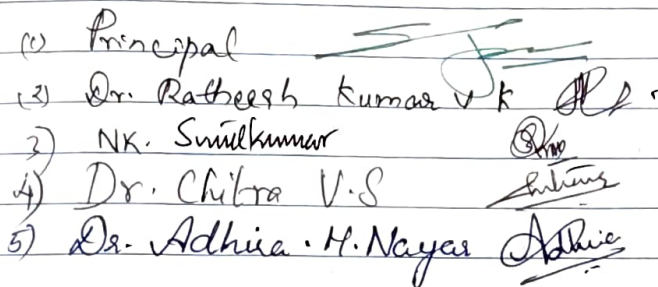 (1) Principal
(2) Dr. Ratheesh Kumar V K
3) NK. Sunilkumar
4) Dr. Chitra V.S
5) Dr. Adhira . M. Nayar